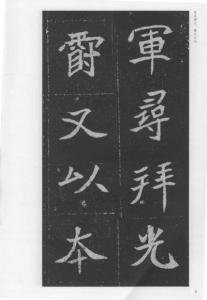 軍尋拜光
爵又以本